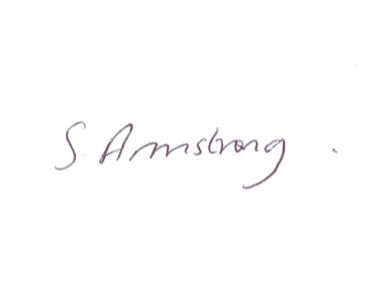 S Armstrong .